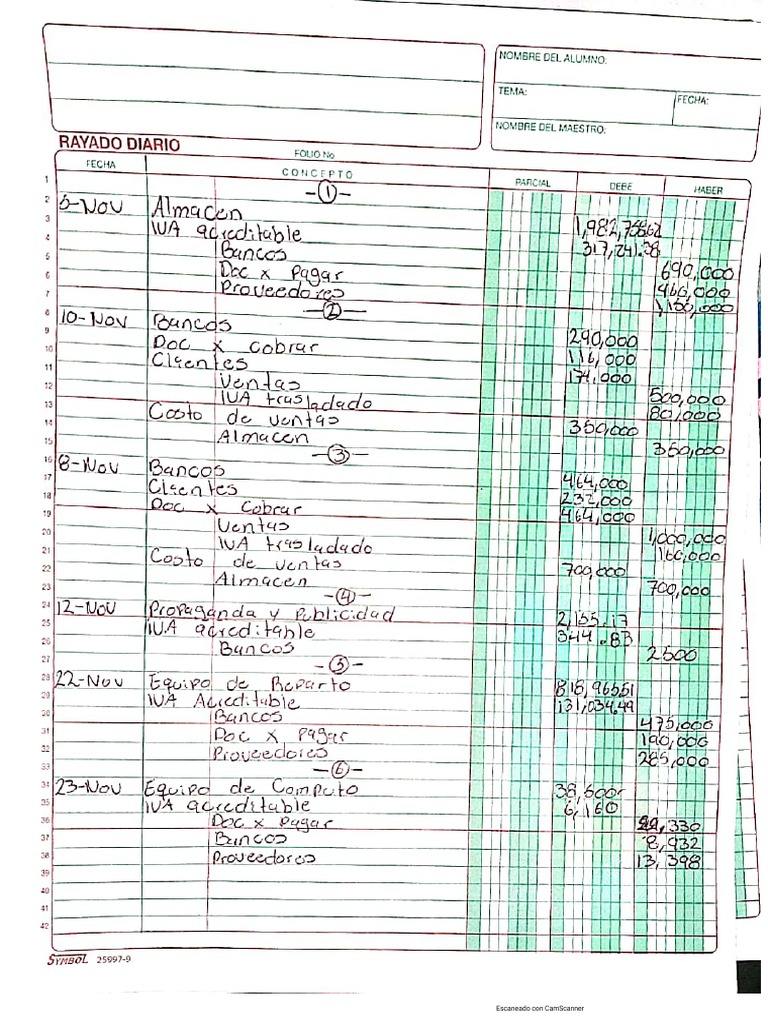 NOMBRE DEL ALUMNO:
TEMA:
FECHA:
NOMBRE DEL MAESTRO:
RAYADO DIARIO
FOLIO No
FECHA CONCEPTO PARCIAL DEBE HABER
-1-
5-Nov Almacen 1,982,758.62
IVA acreditable 317,241.38
Bancos 690,000
Doc x Pagar 460,000
Proveedores 1,150,000
-2-
10-Nov Bancos 290,000
Doc x Cobrar 116,000
Clientes 174,000
Ventas 500,000
IVA trasladado 80,000
Costo de ventas 350,000
Almacen 350,000
-3-
8-Nov Bancos 464,000
Clientes 232,000
Doc x Cobrar 464,000
Ventas 1,000,000
IVA trasladado 160,000
Costo de ventas 700,000
Almacen 700,000
-4-
12-Nov Propaganda y Publicidad 2,155.17
IVA acreditable 344.83
Bancos 2500
-5-
22-Nov Equipo de Reparto 818,965.51
IVA Acreditable 131,034.49
Bancos 475,000
Doc x Pagar 190,000
Proveedores 285,000
-6-
23-Nov Equipo de Computo 38,500
IVA acreditable 6,160
Doc x Pagar 22,330
Bancos 8,932
Proveedores 13,398
SYMBOL 25997-9
Escaneado con CamScanner